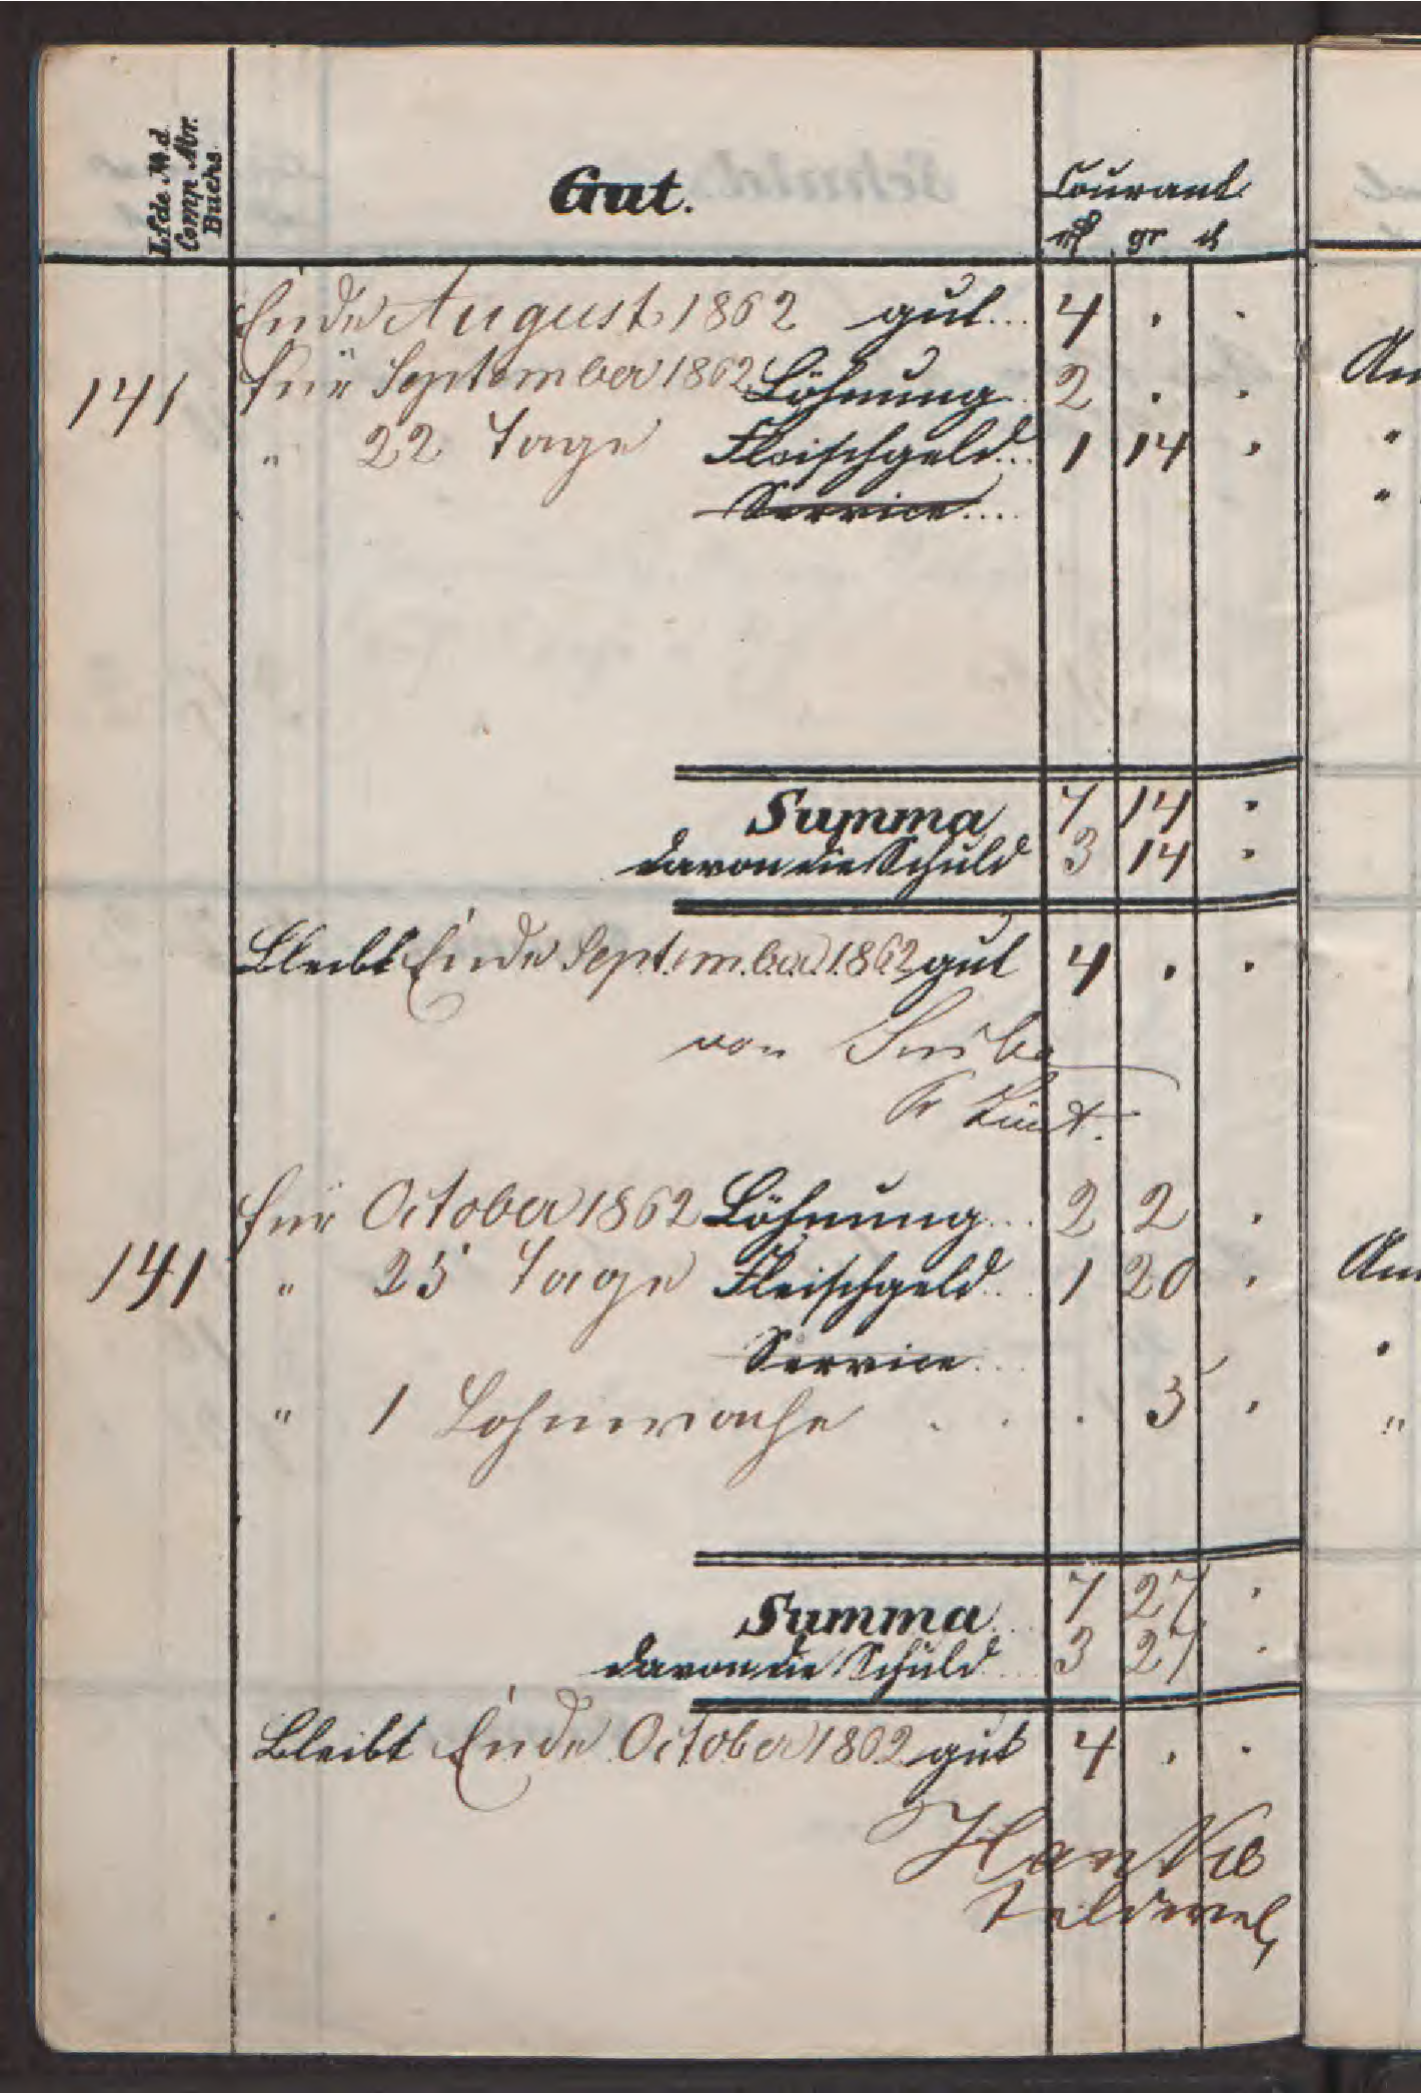 Lfde No. d.
Comp. Abr.
Buchs.
Gut.
Courant
rf gr d
Ende August 1862 gut.... 4 . .
141 für September 1862 Löhnung 2 . .
" 22 Tage Fleischgeld... 1 14 .
Service....
Summa 7 14 .
davon die Schuld 3 14 .
Bleibt Ende September 1862 gut 4 . .
von
Pr Lieut.
für October 1862 Löhnung... 2 2 .
141 " 25 Tage Fleischgeld... 1 20 .
Service...
" 1 Lohnwache . . . 3 .
Summa.. 7 27 .
davon die Schuld... 3 27 .
Bleibt Ende October 1862 gut 4 . .
Hanke
Feldwebel
An
"
"
An
"
"